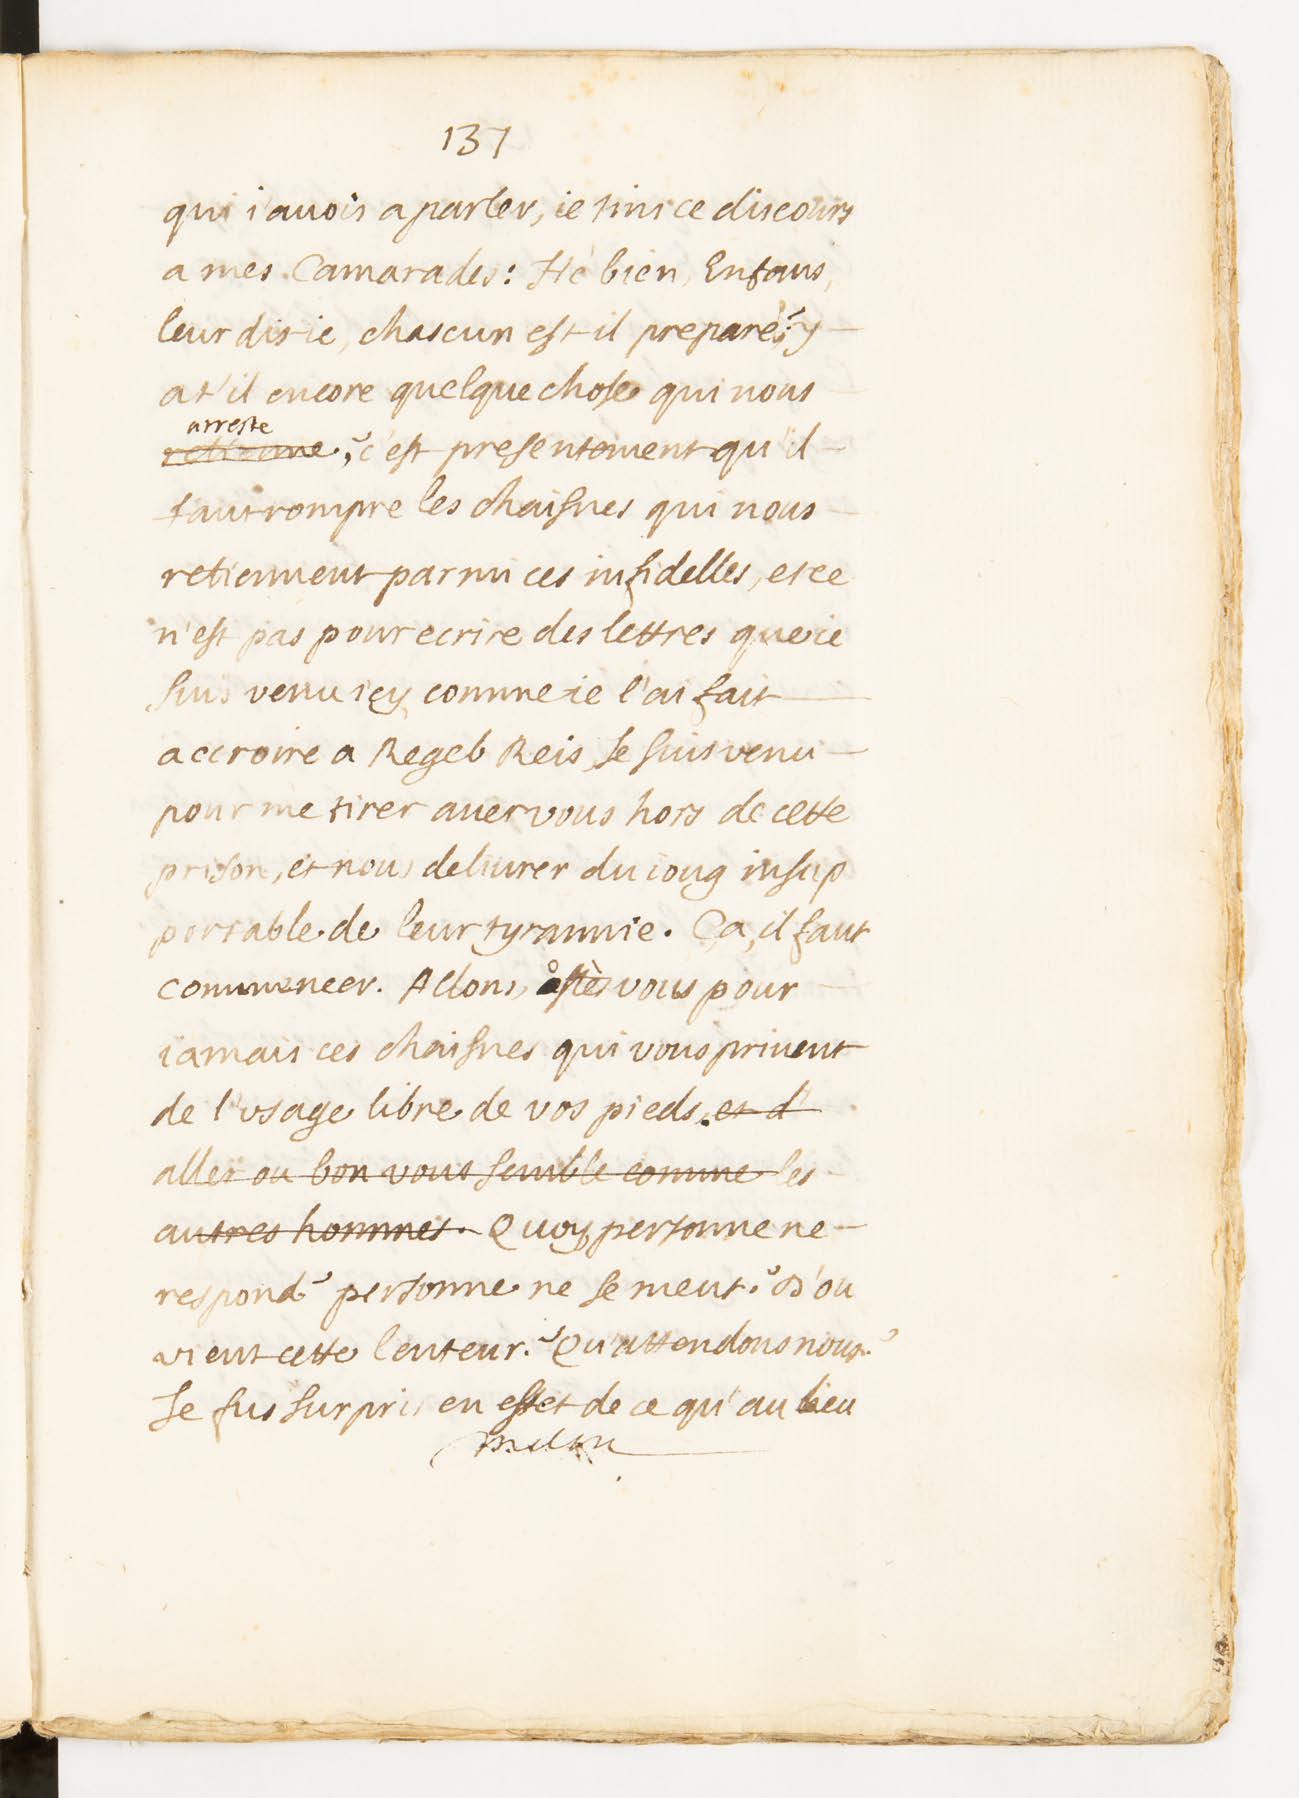 137
qui i'auois a parler, ie tins ce discours
a mes Camarades: Hé bien, Enfans,
leur dis-ie, chascun est-il preparé? y
a t'il encore quelque chose qui nous
arreste
retienne? c'est presentement qu'il
faut rompre les chaisnes qui nous
retiennent parmi ces infidelles, et ce
n'est pas pour ecrire des lettres que ie
suis venu icy, comme ie l'ai fait
accroire a Regeb Reis, Je suis venu
pour me tirer auec vous hors de cette
prison, et nous deliurer du ioug insup
portable de leur tyrannie. Ça, il faut
commencer. Allons, ostès vous pour
iamais ces chaisnes qui vous priuent
de l'usage libre de vos pieds. et d'
aller ou bon vous semble comme les
autres hommes. Quoy, personne ne
respond? personne ne se meut? D'ou
vient cette lenteur? Qu'attendons nous?
Je fus surpris en effet de ce qu'au lieu